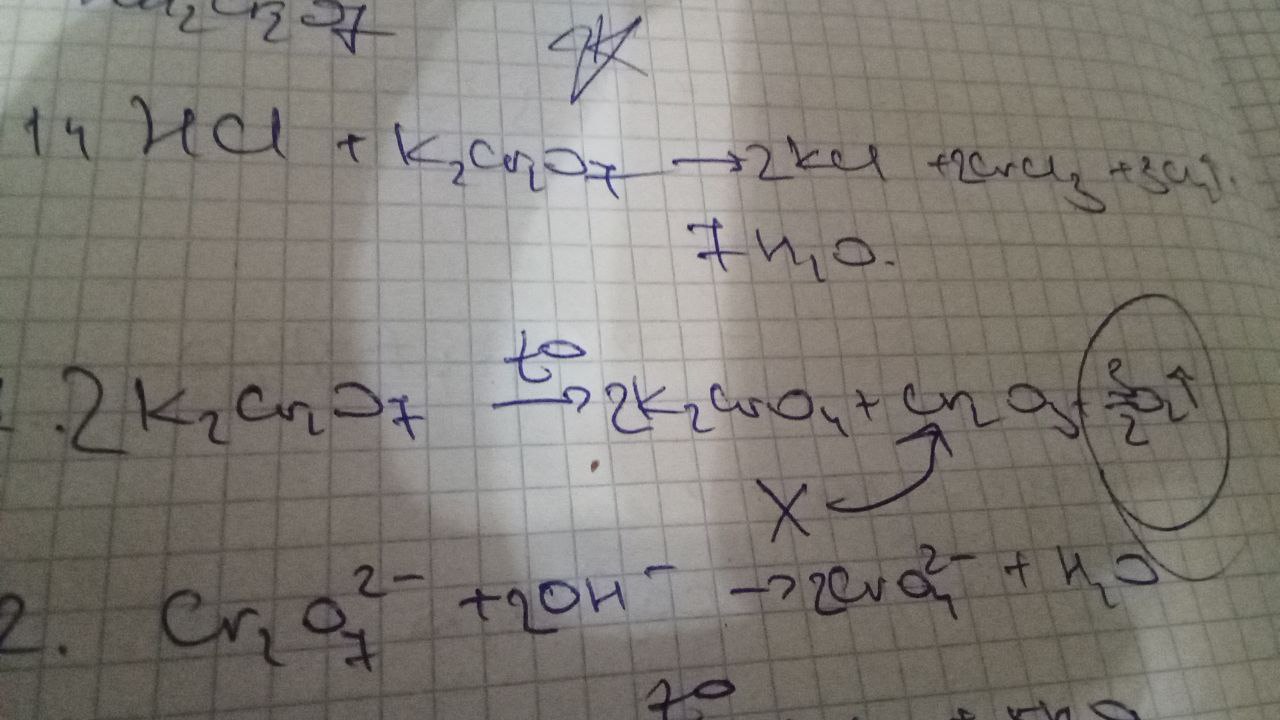 Cr₂O₇
14 HCl + K₂Cr₂O₇ → 2KCl + 2CrCl₃ + 3Cl₂↑.
7H₂O.
.2K₂Cr₂O₇ t° → 2K₂CrO₄ + Cr₂O₃ + 3/2 O₂↑
X
2. Cr₂O₇²⁻ + 2OH⁻ → 2CrO₄²⁻ + H₂O
t°